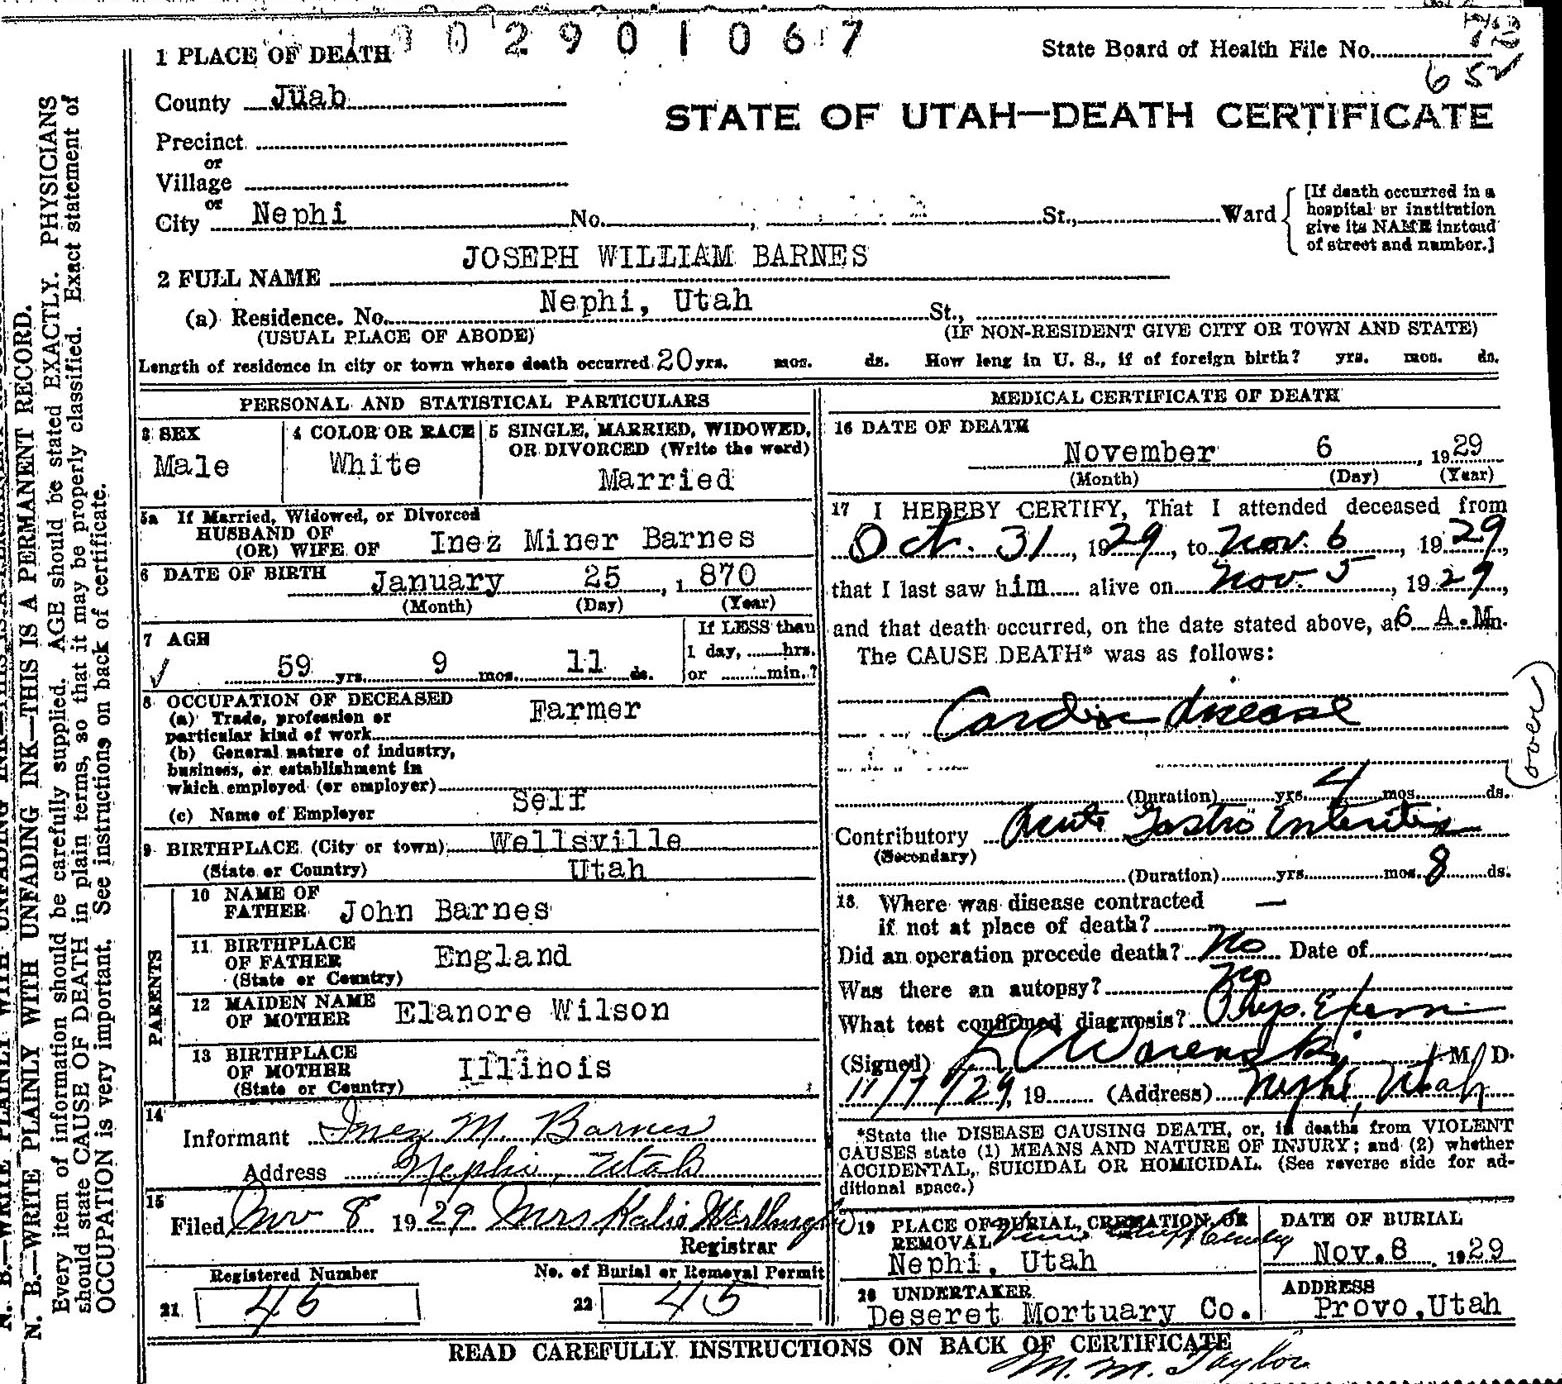 1002901067
1 PLACE OF DEATH
State Board of Health File No.
652
County Juab
STATE OF UTAH—DEATH CERTIFICATE
Precinct
or
Village
or
City Nephi No. St., Ward
[If death occurred in a
hospital or institution
give its NAME instead
of street and number.]
JOSEPH WILLIAM BARNES
2 FULL NAME
Nephi, Utah
(a) Residence. No. St.,
(USUAL PLACE OF ABODE) (IF NON-RESIDENT GIVE CITY OR TOWN AND STATE)
Length of residence in city or town where death occurred 20 yrs. mos. ds. How long in U. S., if of foreign birth? yrs. mos. ds.
PERSONAL AND STATISTICAL PARTICULARS
3 SEX
Male
4 COLOR OR RACE
White
5 SINGLE, MARRIED, WIDOWED,
OR DIVORCED (Write the word)
Married
5a If Married, Widowed, or Divorced
HUSBAND OF
(OR) WIFE OF Inez Miner Barnes
6 DATE OF BIRTH January 25, 1870
(Month) (Day) (Year)
7 AGE
59 yrs. 9 mos. 11 ds.
If LESS than
1 day, hrs.
or min.?
8 OCCUPATION OF DECEASED
(a) Trade, profession or
particular kind of work Farmer
(b) General nature of industry,
business, or establishment in
which employed (or employer)
Self
(c) Name of Employer
9 BIRTHPLACE (City or town) Wellsville
(State or Country) Utah
PARENTS
10 NAME OF
FATHER John Barnes
11 BIRTHPLACE
OF FATHER England
(State or Country)
12 MAIDEN NAME
OF MOTHER Elanore Wilson
13 BIRTHPLACE
OF MOTHER Illinois
(State or Country)
14
Informant Inez M. Barnes
Address Nephi, Utah
15
Filed Nov 8 1929 Mrs
Registrar
Registered Number
21 46
No. of Burial or Removal Permit
22 45
MEDICAL CERTIFICATE OF DEATH
16 DATE OF DEATH
November 6, 1929
(Month) (Day) (Year)
17 I HEREBY CERTIFY, That I attended deceased from
Oct. 31, 1929, to Nov. 6, 1929,
that I last saw him alive on Nov. 5, 1929,
and that death occurred, on the date stated above, at 6 A.M m.
The CAUSE DEATH* was as follows:
Cardiac disease
(over)
(Duration) yrs. 4 mos. ds.
Contributory Acute Gastro Enteritis
(Secondary)
(Duration) yrs. mos. 8 ds.
18. Where was disease contracted —
if not at place of death?
Did an operation precede death? No Date of
Was there an autopsy? No
What test confirmed diagnosis? Phys. Exam
(Signed) M. D.
11/7/29, 19 (Address) Nephi, Utah
*State the DISEASE CAUSING DEATH, or, in deaths from VIOLENT
CAUSES state (1) MEANS AND NATURE OF INJURY; and (2) whether
ACCIDENTAL, SUICIDAL OR HOMICIDAL. (See reverse side for ad-
ditional space.)
19 PLACE OF BURIAL, CREMATION, OR
REMOVAL
Nephi, Utah
DATE OF BURIAL
Nov. 8, 1929
20 UNDERTAKER
Deseret Mortuary Co.
ADDRESS
Provo, Utah
READ CAREFULLY INSTRUCTIONS ON BACK OF CERTIFICATE
M. M. Taylor
N. B.—WRITE PLAINLY WITH UNFADING INK—THIS IS A PERMANENT RECORD.
Every item of information should be carefully supplied. AGE should be stated EXACTLY. PHYSICIANS
should state CAUSE OF DEATH in plain terms, so that it may be properly classified. Exact statement of
OCCUPATION is very important. See instructions on back of certificate.